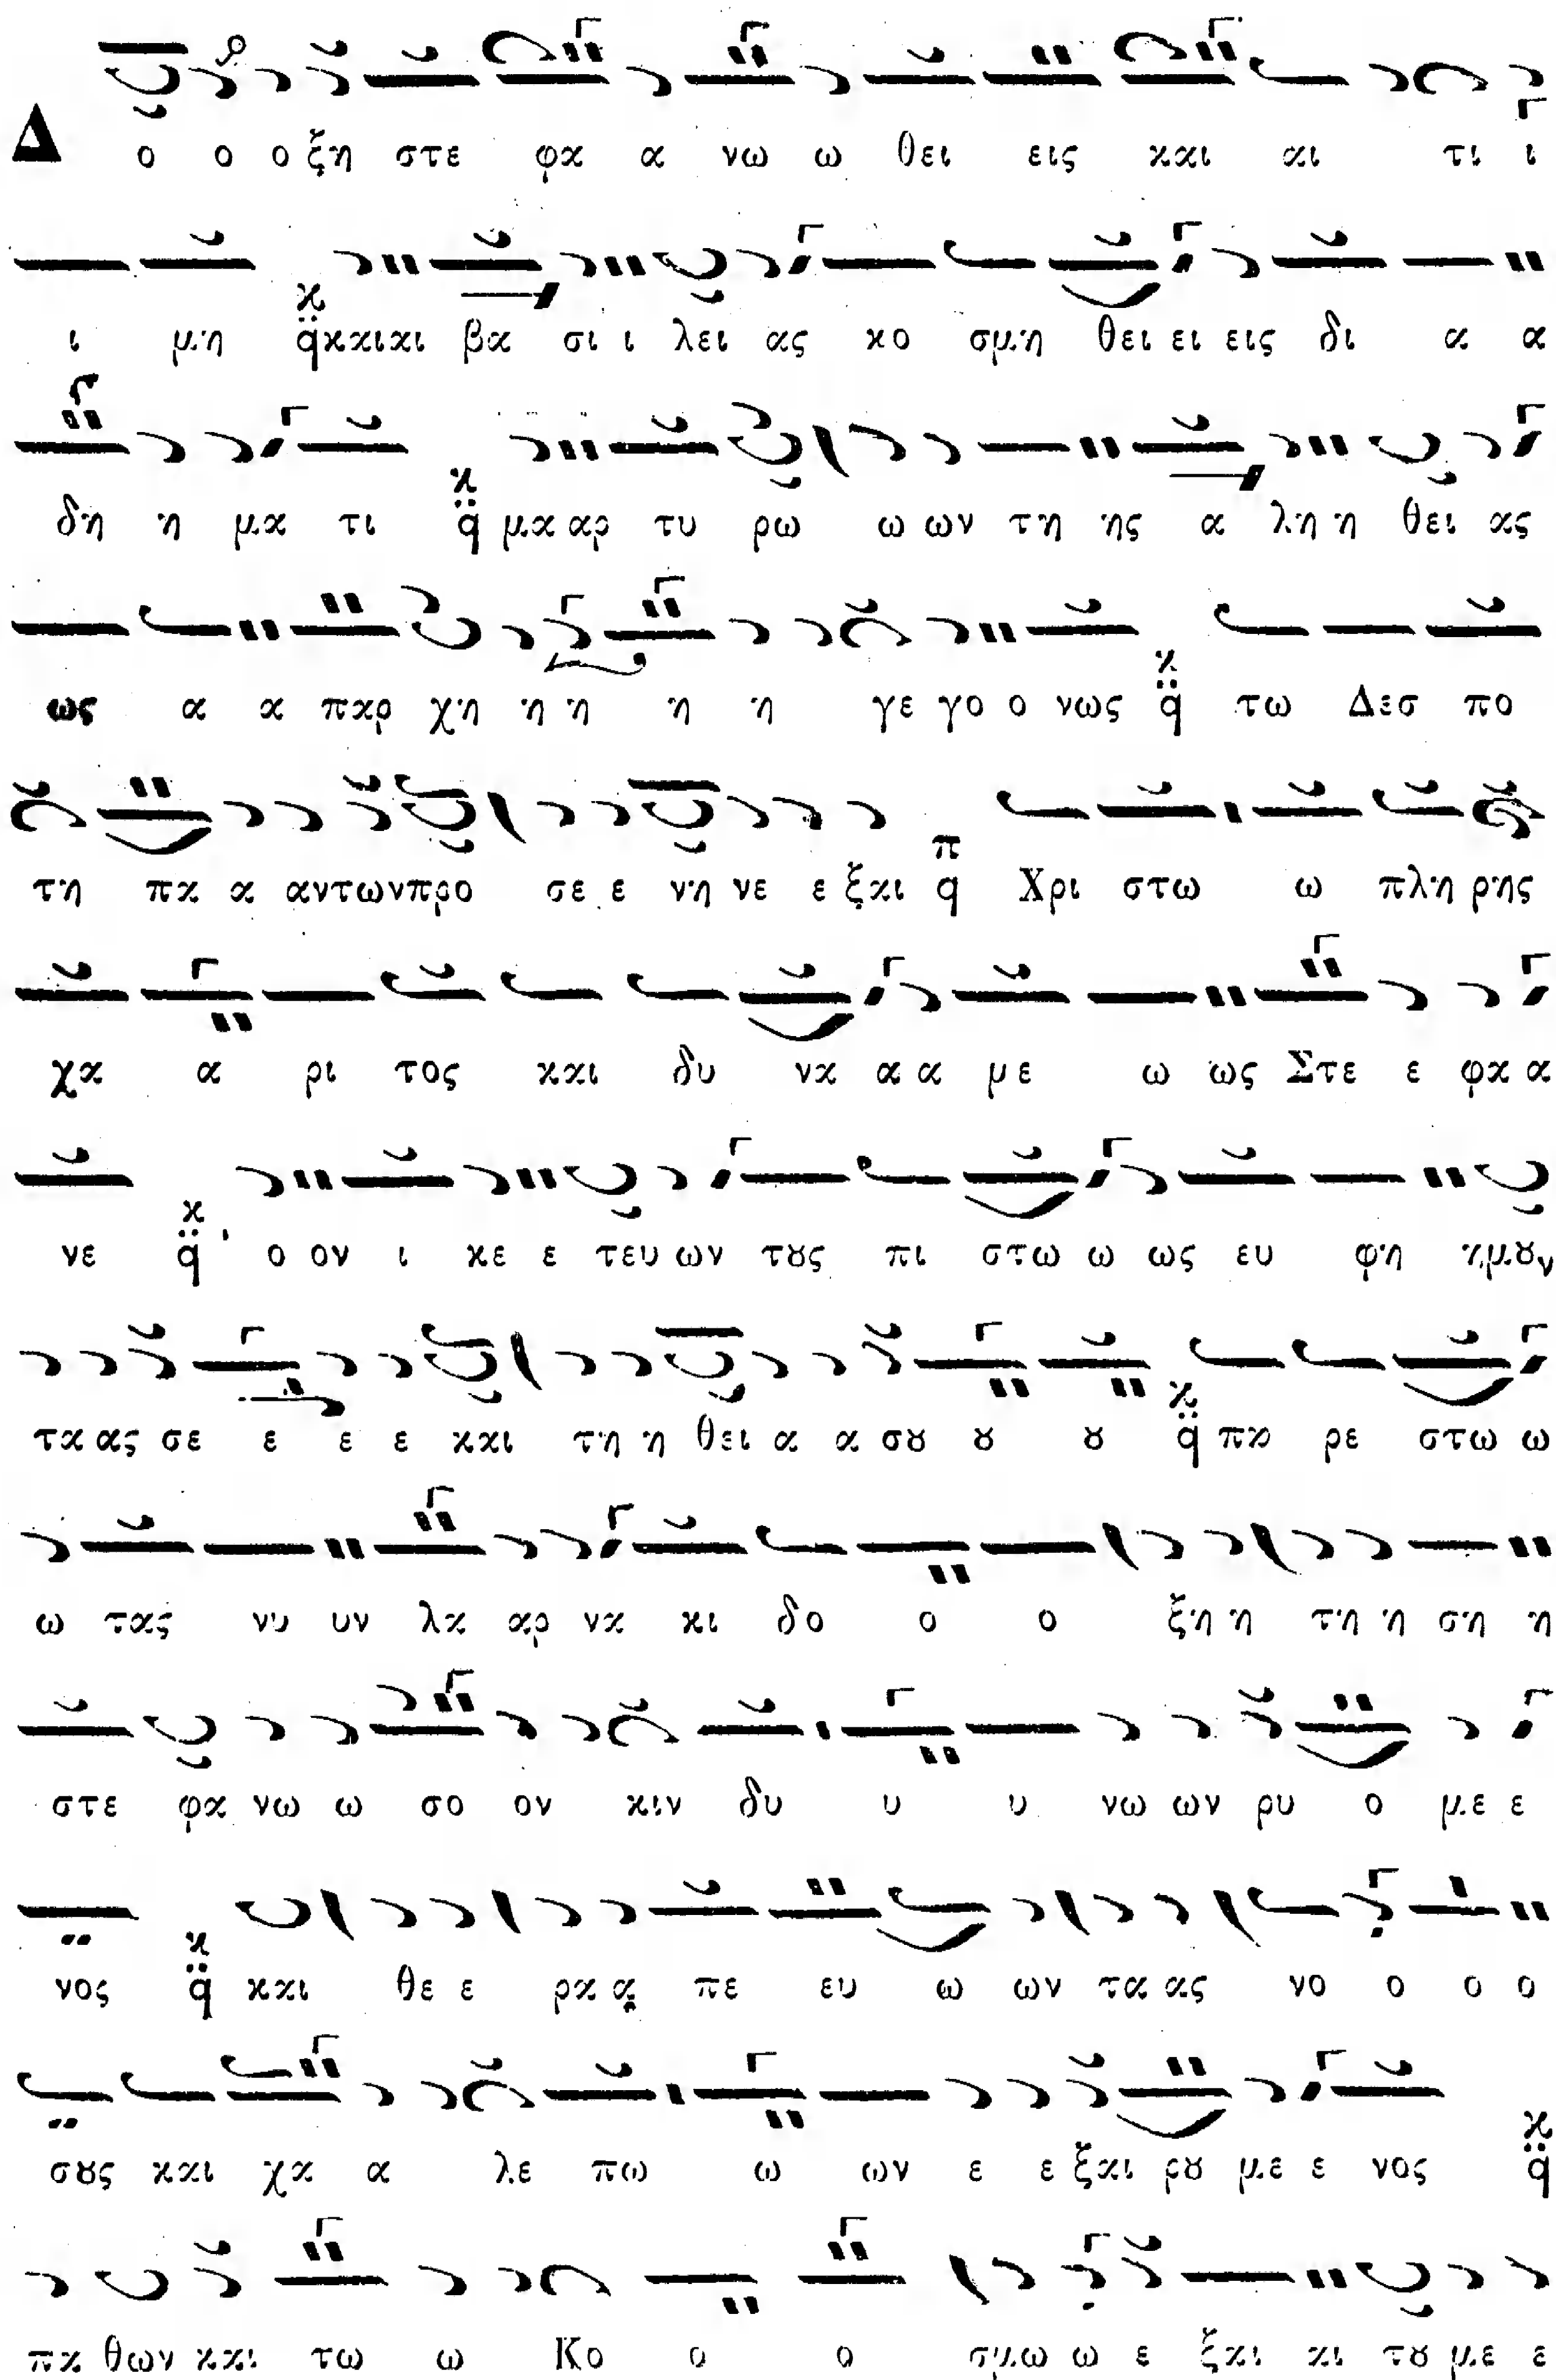 Δ ο ο ο ξη στε φα α νω ω θει εις και αι τι ι
ι μη κ q̈ και αι βα σι ι λει ας κο σμη θει ει εις δι α α
δη η μα τι κ q̈ μα αρ τυ ρω ω ων τη ης α λη η θει ας
ως α α παρ χη η η η η γε γο ο νως κ q̈ τω Δεσ πο
τη πα α αντων προ σε ε νη νε ε ξαι π q Χρι στω ω πλη ρης
χα α ρι τος και δυ να α α με ω ως Στε ε φα α
νε κ q̈ ο ον ι κε ε τευ ων τȣς πι στω ω ως ευ φη ημȣν
τα ας σε ε ε ε και τη η θει α α σȣ ȣ ȣ κ q̈ πα ρε στω ω
ω τας νυ υν λα αρ να κι δο ο ο ξη η τη η ση η
στε φα νω ω σο ον κιν δυ υ υ νω ων ρυ ο με ε
νος κ q̈ και θε ε ρα α πε ευ ω ων τα ας νο ο ο ο
σȣς και χα α λε πω ω ων ε ε ξαι ρȣ με ε νος κ q̈
πα θων και τω ω Κο ο ο σμω ω ε ξαι αι τȣ με ε